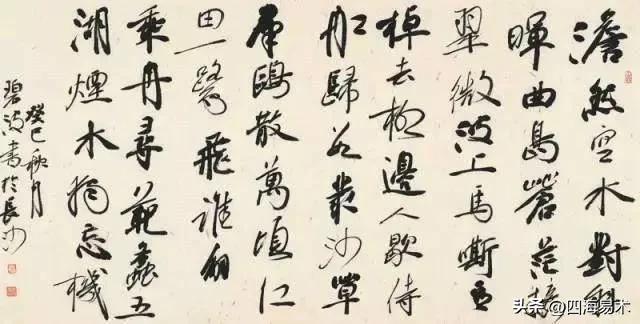 澹然空水對斜
暉曲島蒼茫接
翠微波上馬嘶看
棹去柳邊人歇待
船歸數叢沙草
群鷗散萬頃江
田一鷺飛誰解
乘舟尋範蠡五
湖煙水獨忘機
癸巳秋月
碧波書於長沙
头条 @四海易木